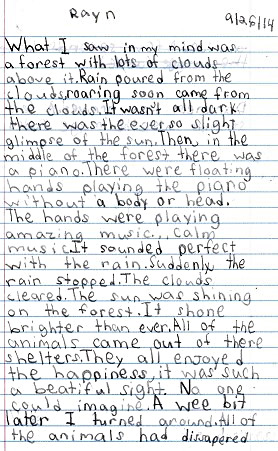 Rayn
9/26/14
What I saw in my mind was
a forest with lots of clouds
above it.Rain poured from the
clouds,roaring soon came from
the clouds.It wasn't all dark
there was the ever so slight
glimpse of the sun.Then, in the
middle of the forest there was
a piano.There were floating
hands playing the piano
without a body or head.
The hands were playing
amazing music... Calm
music.It sounded perfect
with the rain.Suddenly the
rain stopped.The clouds
cleared.The sun was shining
on the forest.It shone
brighter than ever.All of the
animals came out of there
shelters.They all enjoyed
the happiness, it was such
a beatiful sight. No one
could imagine.A wee bit
later I turned around.All of
the animals had dissapered